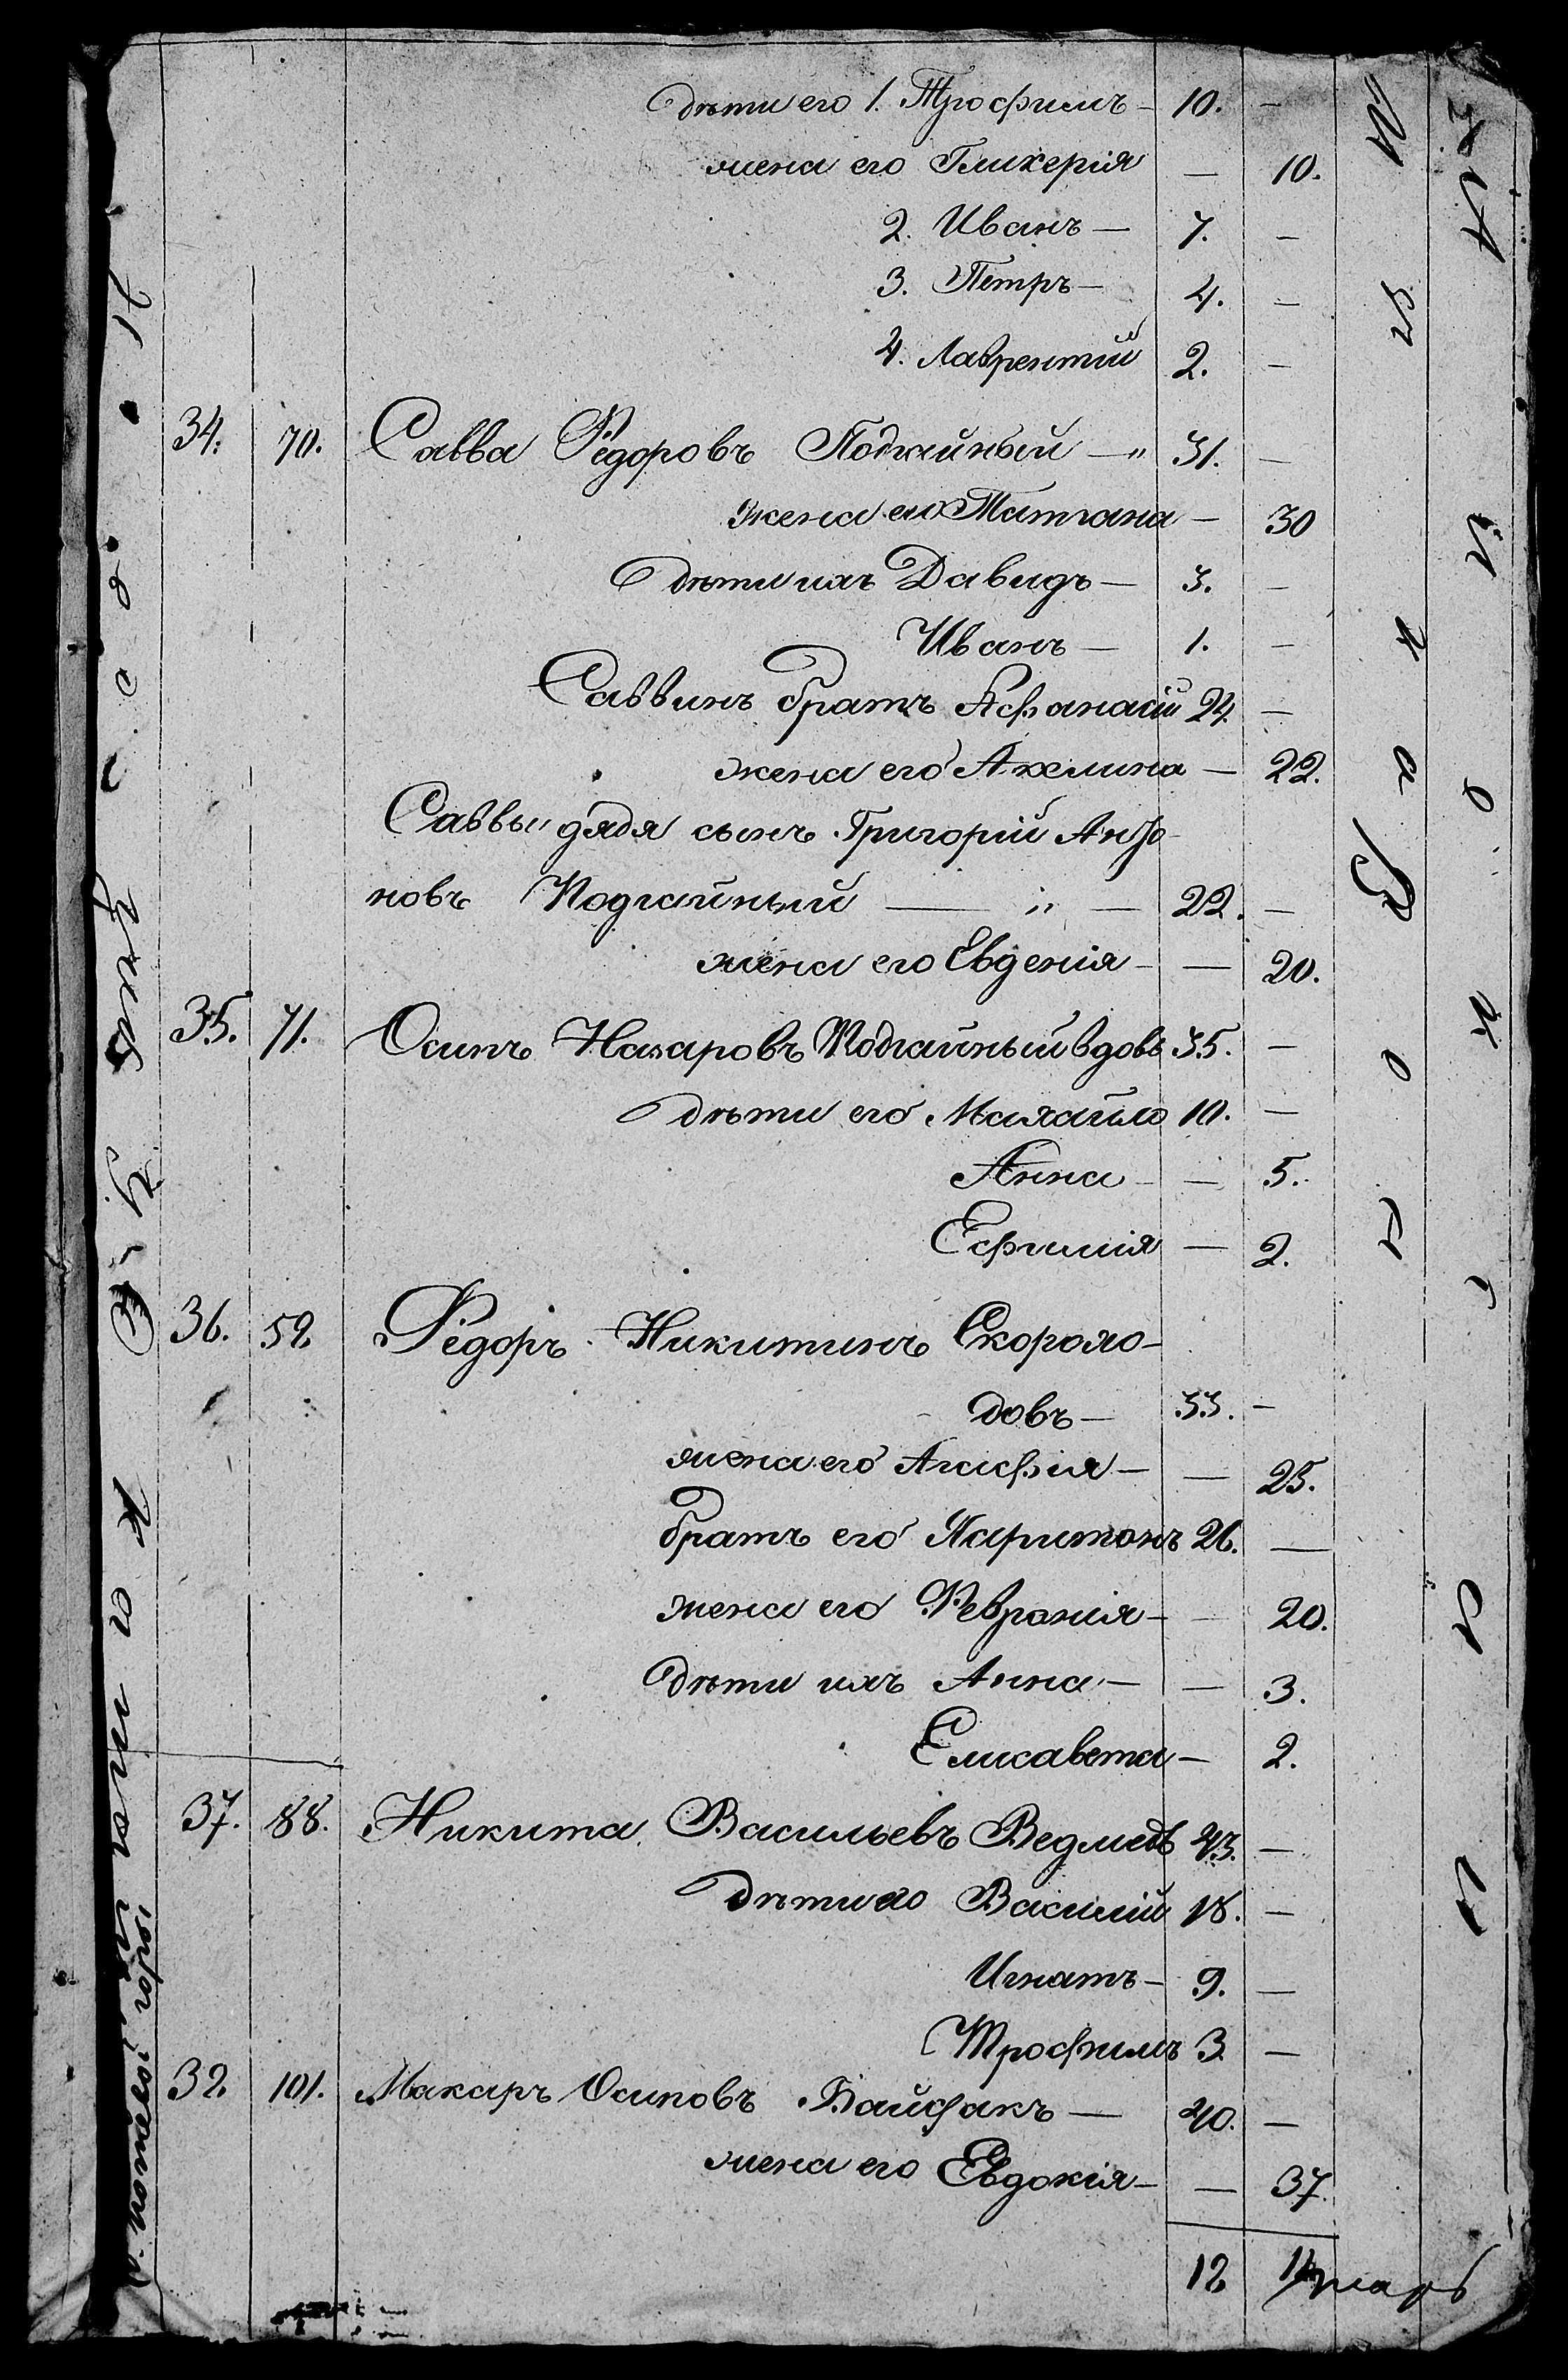 дѣти его 1. Трофимъ — 10. —
жена его Гликерія — 10.
2. Иванъ — 7. —
3. Петръ — 4. —
4. Лаврентий 2. —
34. 70. Савва Ѳедоровъ Подгайный — „ 31. —
жена его Татіана — 30
дѣти ихъ Давидъ — 3. —
Иванъ — 1. —
Саввинъ братъ Афанасій 24. —
жена его Акилина — 22.
Саввы дядя сынъ Григорій
новъ Подгайный — „ — 22. —
жена его Евгенія — — 20.
35. 71. Осипъ Назаровъ Подгайный вдовъ 35. —
дѣти его Михайло 10. —
Анна — — 5.
Ефимія — 2.
36. 52 Ѳедоръ Никитинъ Скорохо-
довъ — 33. —
жена его Агафія — — 25.
братъ его Харитонъ 26. —
жена его Февранія — — 20.
дѣти ихъ Анна — — 3.
Елисавета — 2.
37. 88. Никита Васильевъ Ведмедь 43. —
дѣти его Василій 18. —
Игнатъ — 9. —
Трофимъ 3. —
101. Макаръ Осиповъ Байдакъ — 40. —
жена его Евдокія — — 37.
12